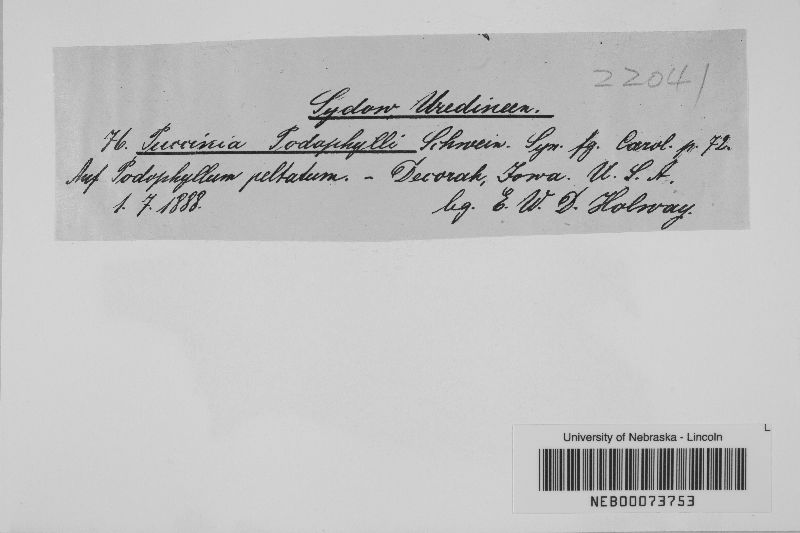 22041
Sydow, Uredineen.
76. Puccinia Podophylli Schwein. Syn. fg. Carol. p. 72.
Auf Podophyllum peltatum. - Decorah, Iowa. U. S. A.
1. 7. 1888. lg. E. W. D. Holway.
L
University of Nebraska - Lincoln
NEB00073753